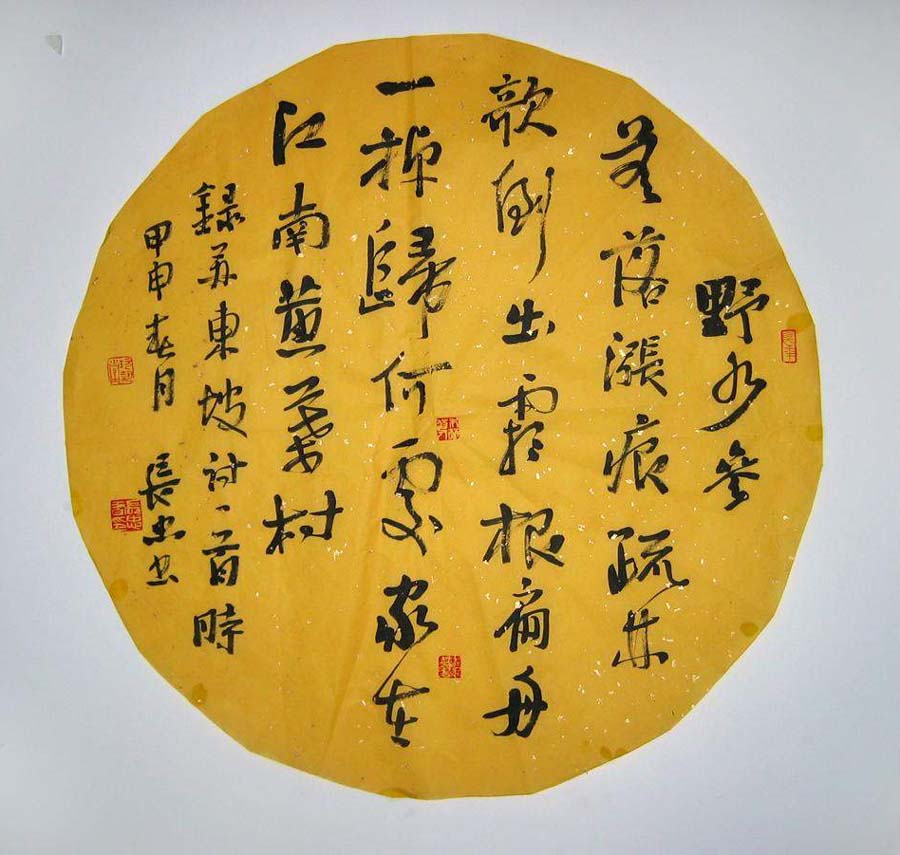 野水參
差落漲痕疏林
欹倒出霜根扁舟
一棹歸何處家在
江南黃葉村
錄苏東坡詩一首時
甲申春月 長忠书